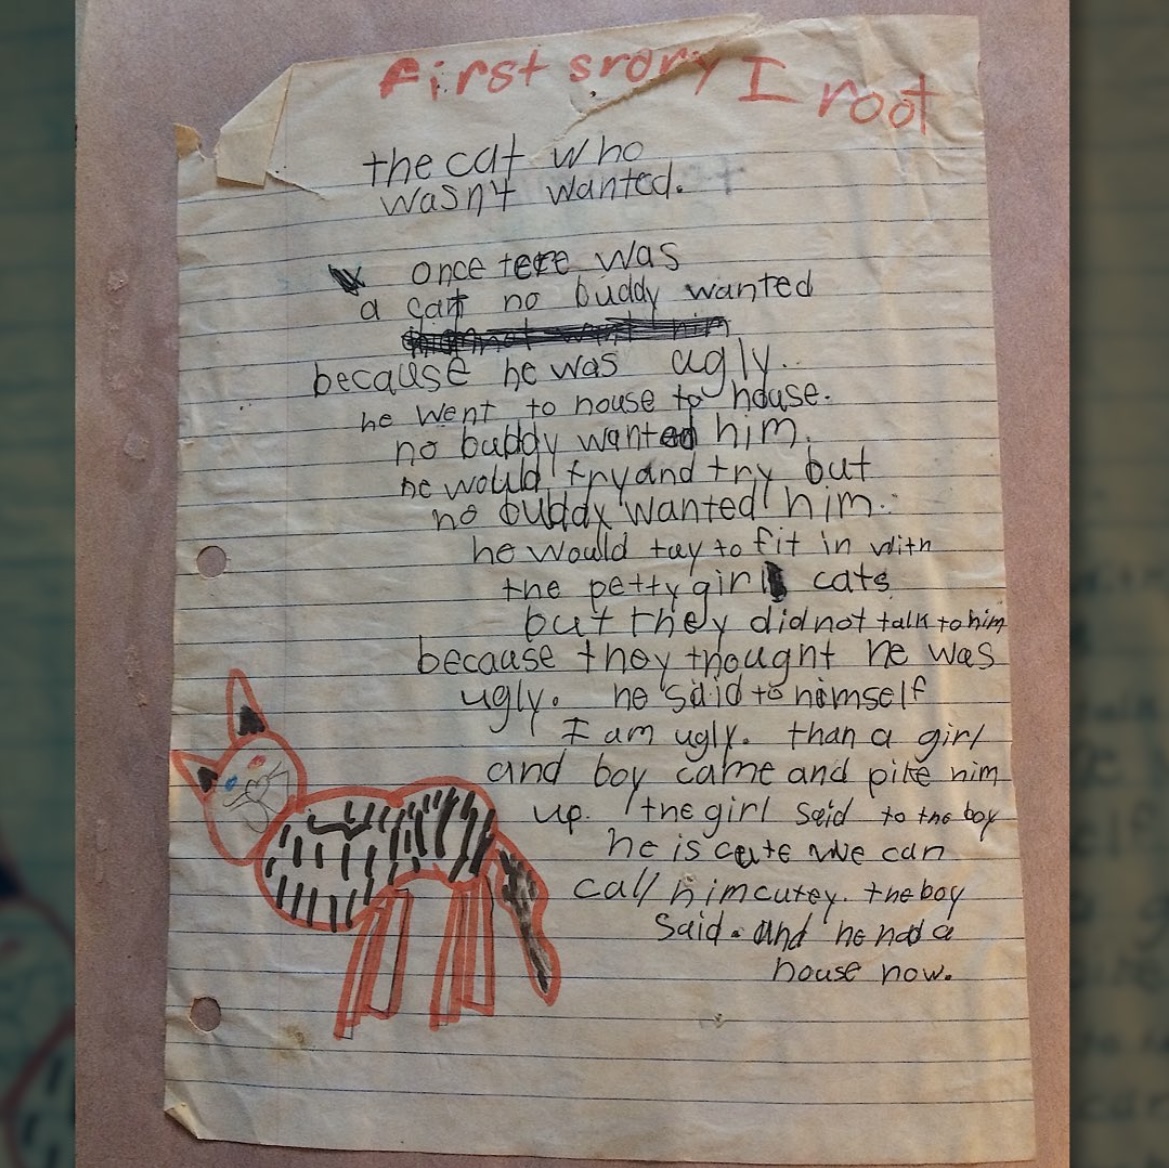 First srory I root
the cat who
wasn't wanted.
once tere was
a cat no buddy wanted
because he was ugly.
he went to house to house.
no buddy wanted him.
he would try and try but
no buddy wanted him.
he would tay to fit in with
the petty girl cats
but they did not talk to him
because they thought he was
ugly. he said to himself
I am ugly. than a girl
and boy came and pike him
up. the girl said to the boy
he is cute we can
call him cutey. the boy
said. and he had a
house now.